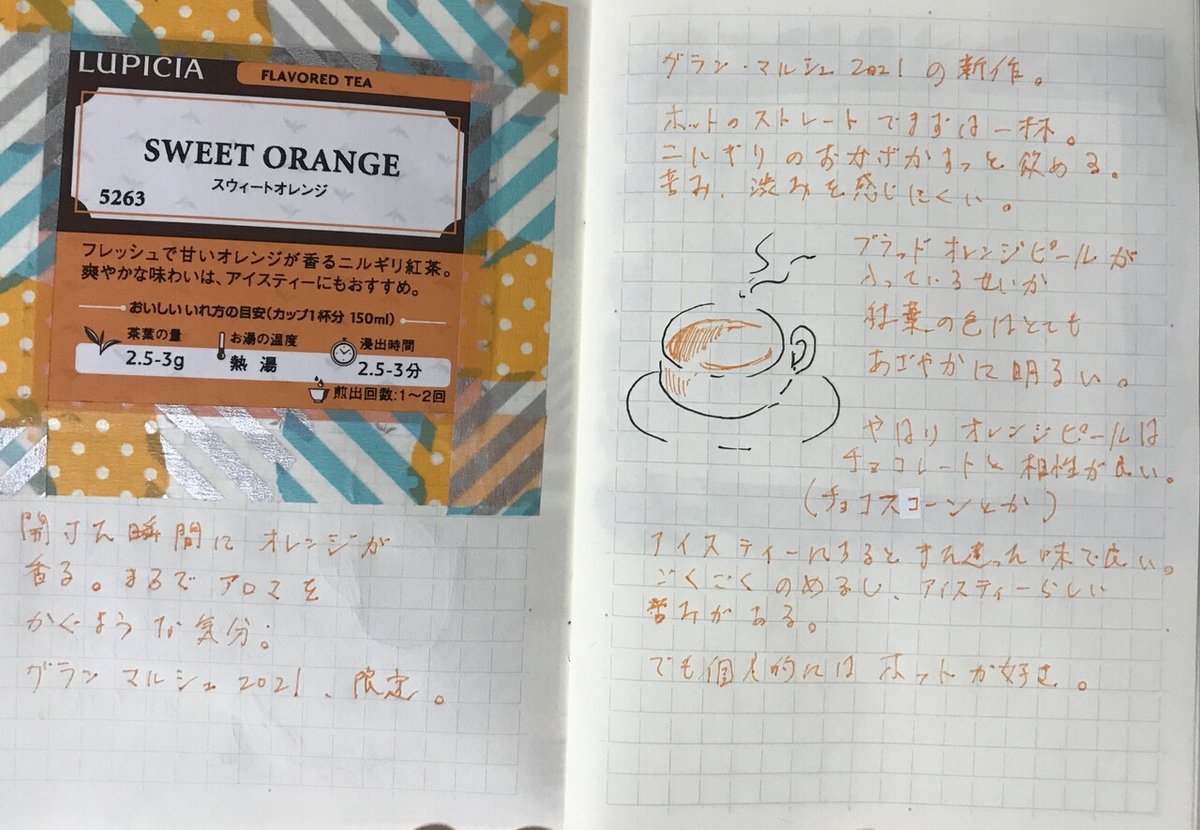 LUPICIA
FLAVORED TEA
SWEET ORANGE
スウィートオレンジ
5263
フレッシュで甘いオレンジが香るニルギリ紅茶。
爽やかな味わいは、アイスティーにもおすすめ。
おいしいいれ方の目安(カップ1杯分 150ml)
茶葉の量
2.5-3g
お湯の温度
熱湯
浸出時間
2.5-3分
煎出回数:1〜2回
開けた瞬間に オレンジが
香る。まるで アロマを
かぐような気分。
グラン マルシェ 2021、限定。
グラン・マルシェ 2021 の新作。
ホットのストレートでまずは一杯。
ニルギリのおかげかすっと飲める。
苦み、渋みを感じにくい。
ブラッドオレンジピールが
入っているせいか
紅葉の色はとても
あざやかに明るい。
やはり オレンジピールは
チョコレートと相性が良い。
(チョコスコーンとか)
アイスティーにすると また違った味で良い。
ごくごくのめるし、アイスティーらしい
苦みがある。
でも個人的には ホットが好き。